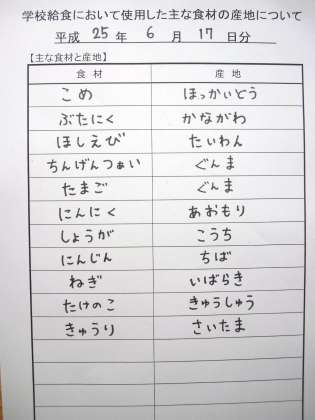 学校給食において使用した主な食材の産地について
平成 25 年 6 月 17 日分
【主な食材と産地】
食材 産地
こめ ほっかいどう
ぶたにく かながわ
ほしえび たいわん
ちんげんつぁい ぐんま
たまご ぐんま
にんにく あおもり
しょうが こうち
にんじん ちば
ねぎ いばらき
たけのこ きゅうしゅう
きゅうり さいたま